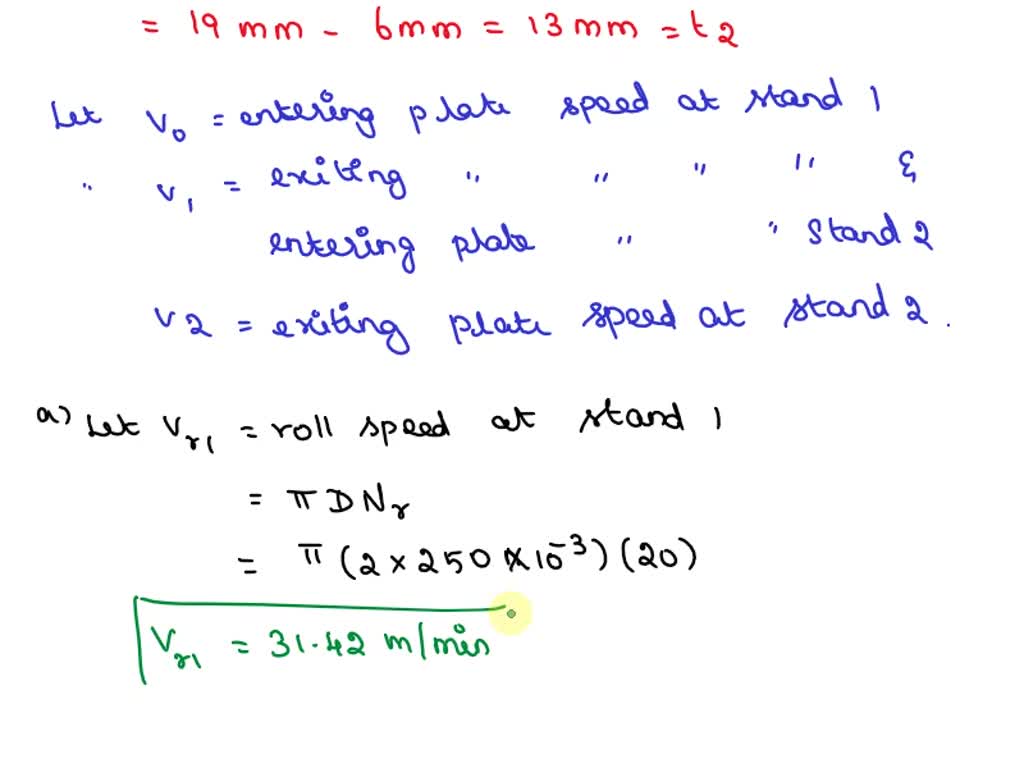 = 19 mm - 6mm = 13 mm = t2
Let V0 = entering plate speed at stand 1
" V1 = exiting " " " " &
entering plate " " Stand 2
V2 = exiting plate speed at stand 2.
a) Let Vr1 = roll speed at stand 1
= π D Nr
= π (2 × 250 × 10^-3) (20)
Vr1 = 31.42 m/min